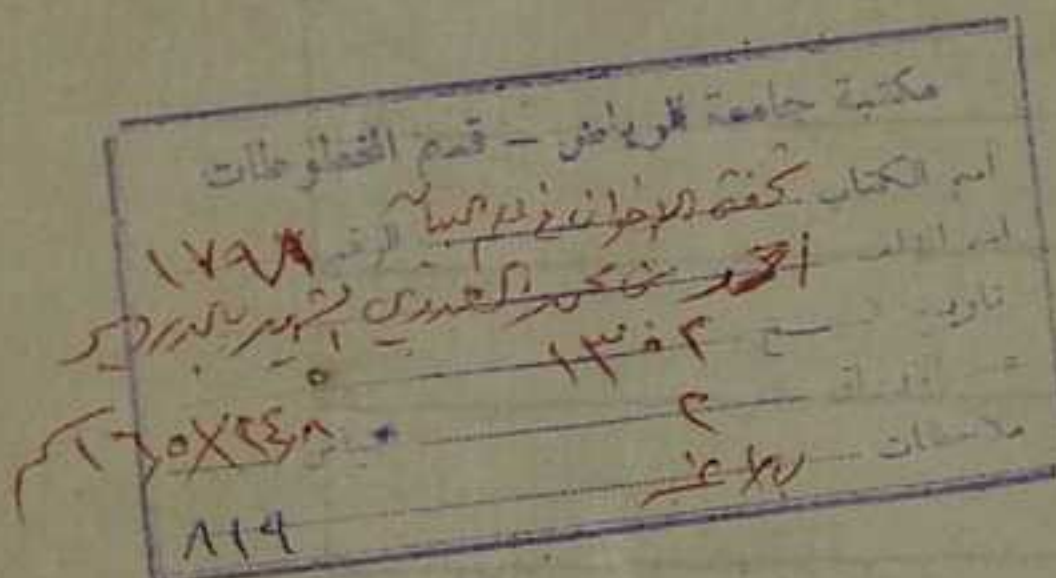 مكتبة جامعة الرياض – قسم المخطوطات
اسم الكتاب تحفة الإخوان في علم البيان الرقم ١٧٩٨
اسم المؤلف أحمد بن محمد العدوي الشهير بالدردير
تاريخ النسخ ١٣٠٢
عدد الأوراق ٢
ملاحظات بلاغة
٨١٩